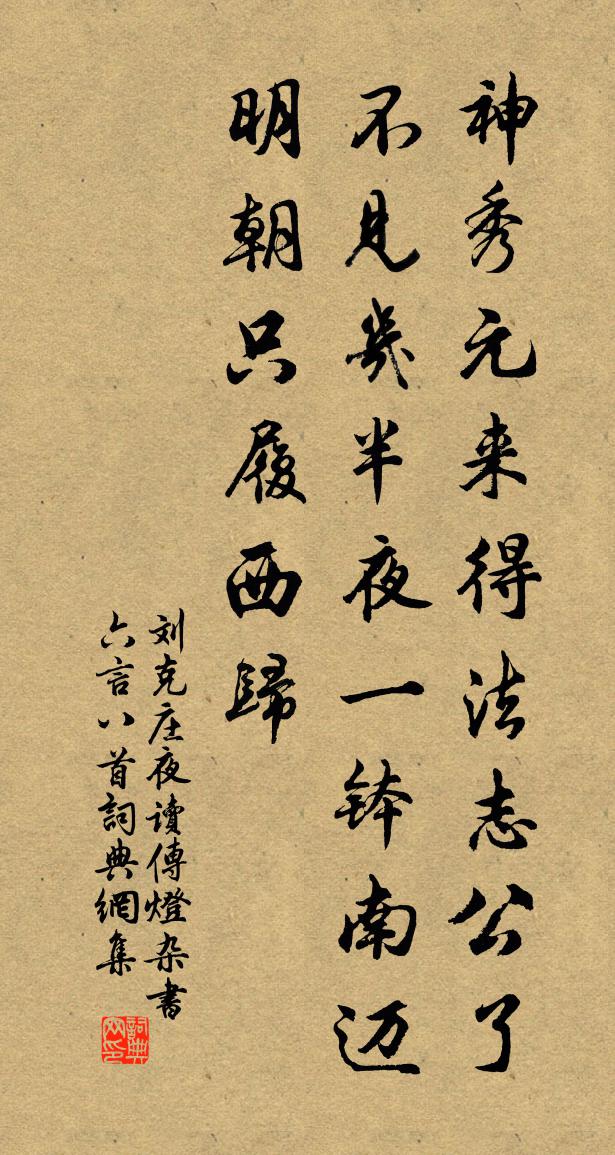 神秀元来得法志公了
不見幾半夜一鉢南迈
明朝只履西歸
刘克庄夜讀傳燈杂書
六言八首詞典網集
詞典
网印